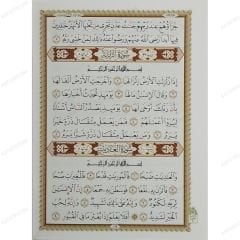 جَزَاؤُهُمْ عِندَ رَبِّهِمْ جَنَّاتُ عَدْنٍ تَجْرِي مِن تَحْتِهَا الْأَنْهَارُ خَالِدِينَ
فِيهَا أَبَدًا رَّضِيَ اللَّهُ عَنْهُمْ وَرَضُوا عَنْهُ ذَٰلِكَ لِمَنْ خَشِيَ رَبَّهُ
سُورَةُ الزَّلْزَلَةِ
بِسْمِ اللَّهِ الرَّحْمَٰنِ الرَّحِيمِ
إِذَا زُلْزِلَتِ الْأَرْضُ زِلْزَالَهَا وَأَخْرَجَتِ الْأَرْضُ أَثْقَالَهَا
وَقَالَ الْإِنسَانُ مَا لَهَا يَوْمَئِذٍ تُحَدِّثُ أَخْبَارَهَا
بِأَنَّ رَبَّكَ أَوْحَىٰ لَهَا يَوْمَئِذٍ يَصْدُرُ النَّاسُ أَشْتَاتًا
لِّيُرَوْا أَعْمَالَهُمْ فَمَن يَعْمَلْ مِثْقَالَ ذَرَّةٍ خَيْرًا
يَرَهُ وَمَن يَعْمَلْ مِثْقَالَ ذَرَّةٍ شَرًّا يَرَهُ
سُورَةُ الْعَادِيَاتِ
بِسْمِ اللَّهِ الرَّحْمَٰنِ الرَّحِيمِ
وَالْعَادِيَاتِ ضَبْحًا فَالْمُورِيَاتِ قَدْحًا فَالْمُغِيرَاتِ صُبْحًا
فَأَثَرْنَ بِهِ نَقْعًا فَوَسَطْنَ بِهِ جَمْعًا إِنَّ الْإِنسَانَ
لِرَبِّهِ لَكَنُودٌ وَإِنَّهُ عَلَىٰ ذَٰلِكَ لَشَهِيدٌ وَإِنَّهُ لِحُبِّ
الْخَيْرِ لَشَدِيدٌ أَفَلَا يَعْلَمُ إِذَا بُعْثِرَ مَا فِي الْقُبُورِ